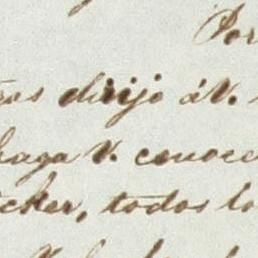 Por
ros dirijo á V.
haga V. conoce
cker, todos lo